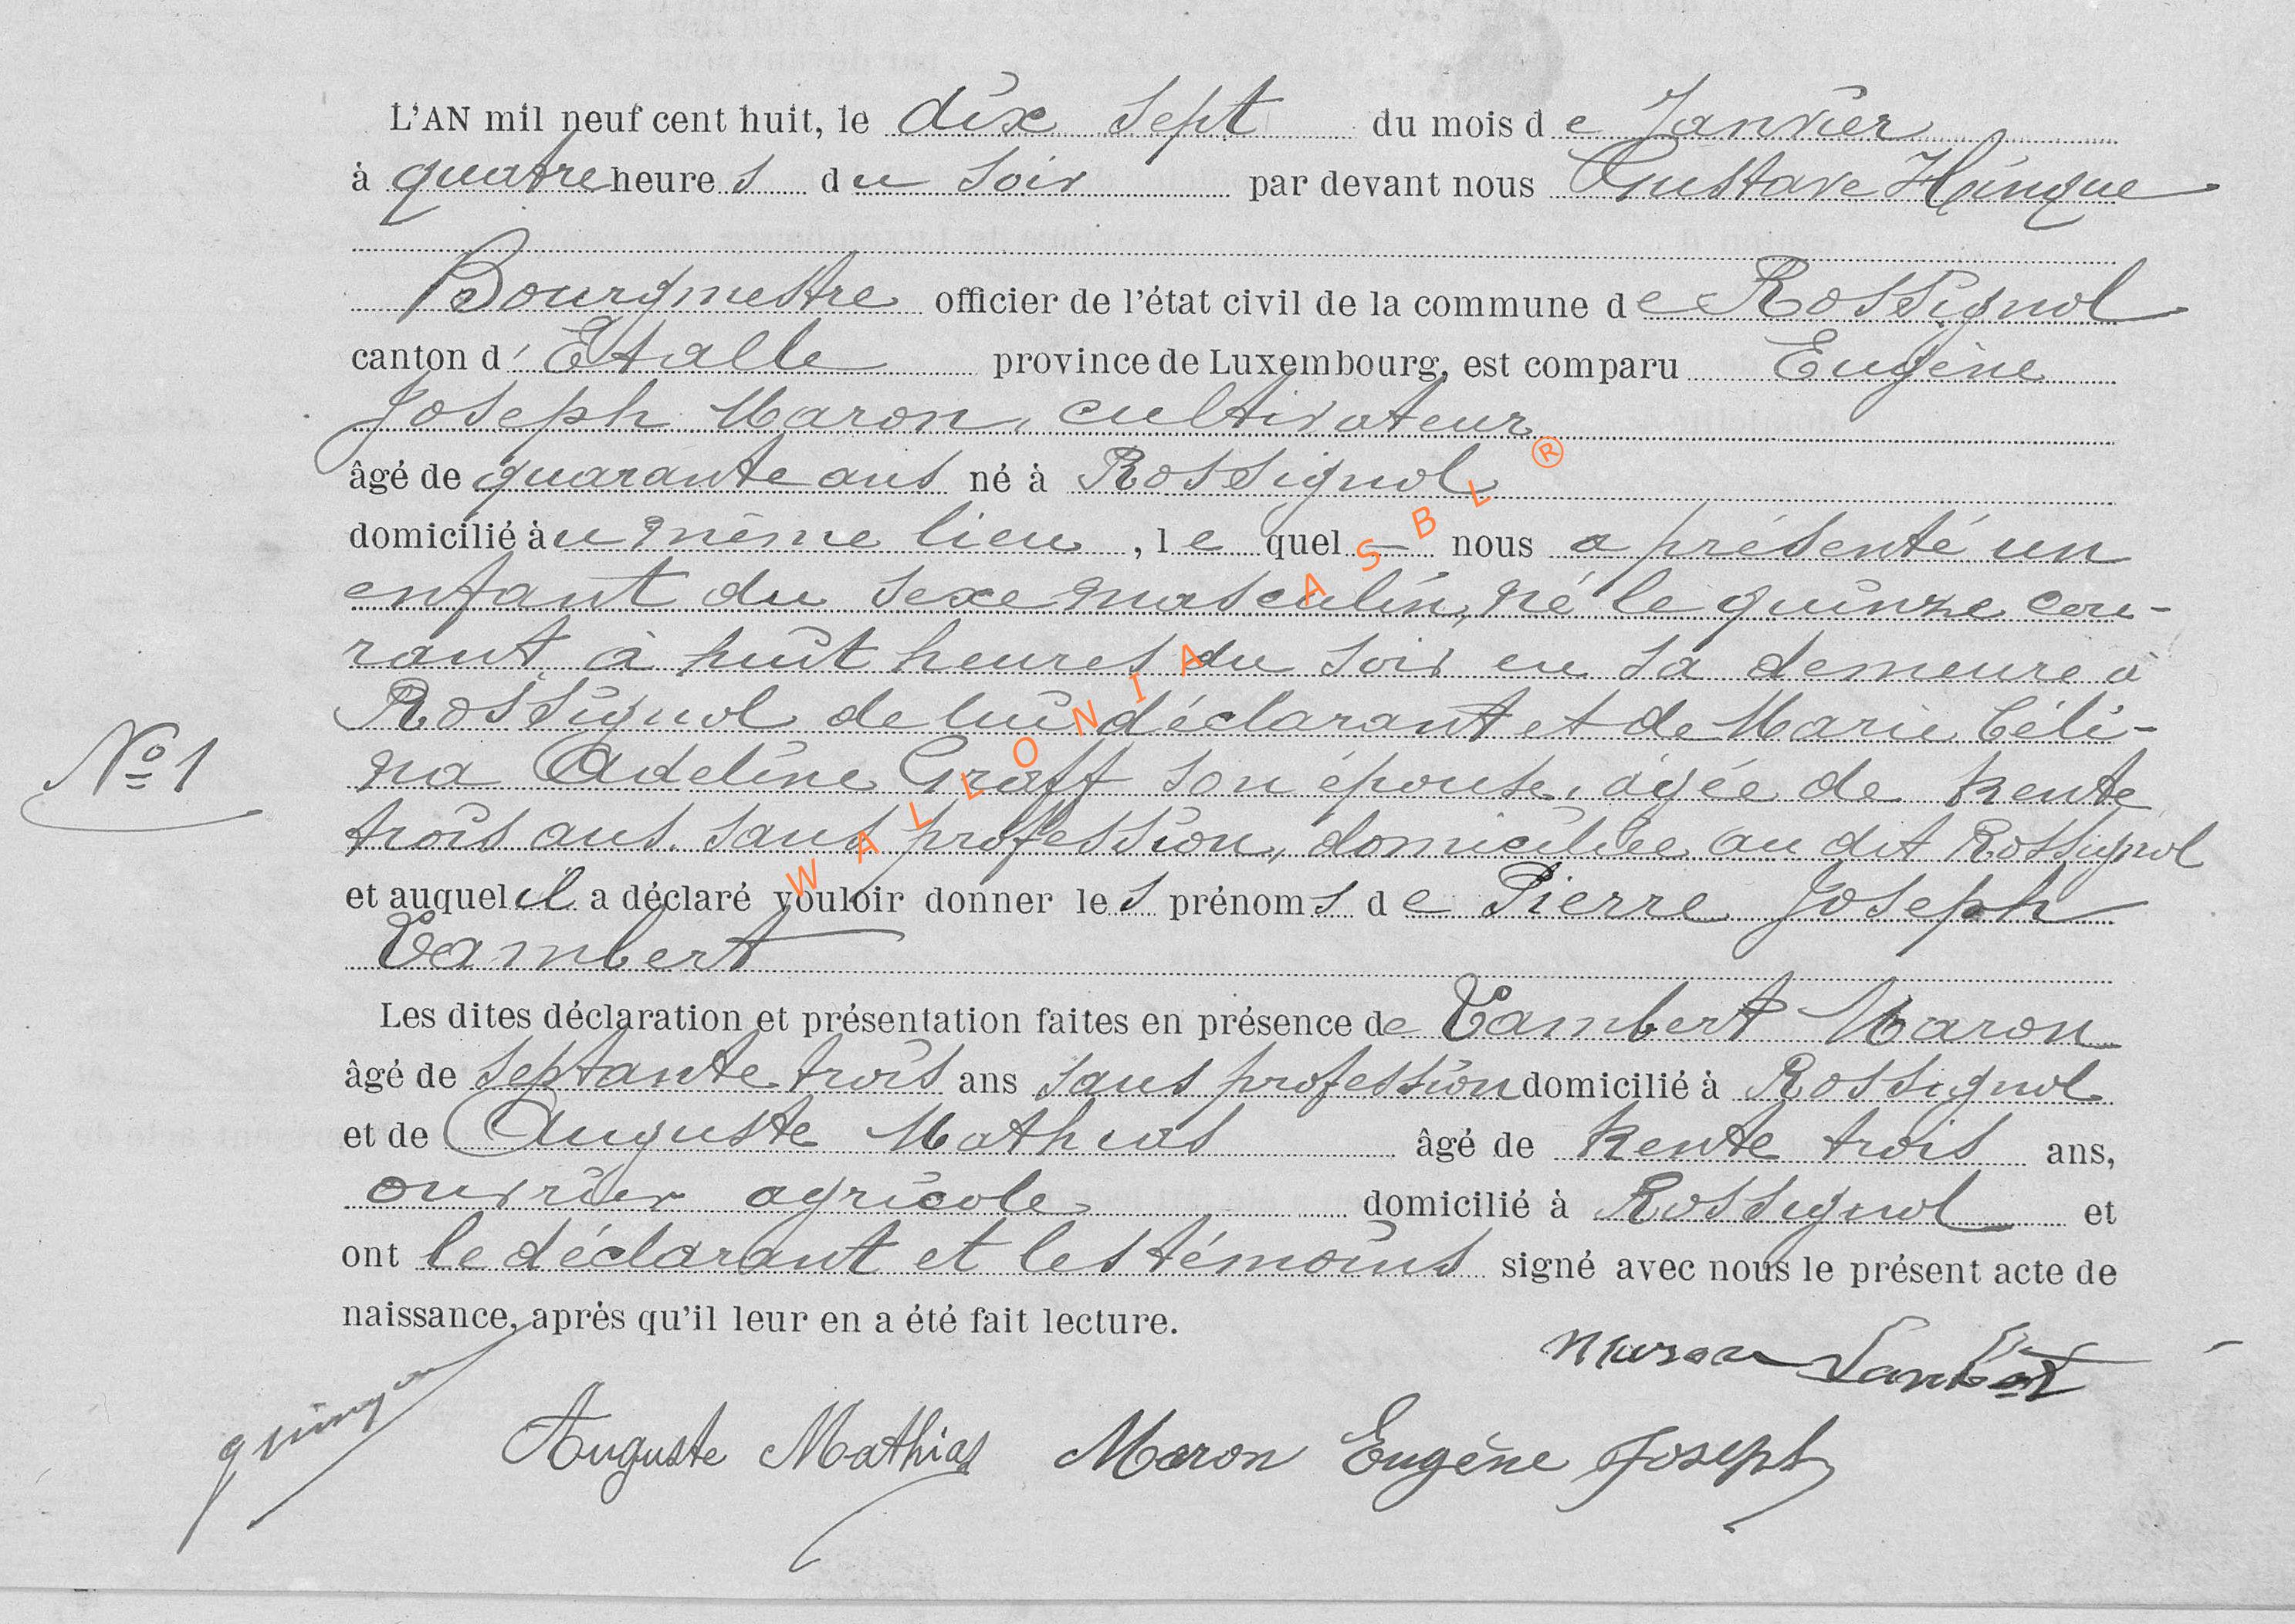 L'AN mil neuf cent huit, le dix sept du mois de Janvier
à quatre heures du soir par devant nous Gustave Hinque
Bourgmestre officier de l'état civil de la commune de Rossignol
canton d'Etalle province de Luxembourg, est comparu Eugène
Joseph Maron, cultivateur
âgé de quarante ans né à Rossignol
domicilié àu même lieu, le quel nous a présenté un
enfant du sexe masculin, né le quinze cou-
rant à huit heures du soir en sa demeure à
Rossignol de lui déclarant et de Marie Céli-
No 1
na Adeline Graff son épouse, agée de trente
trois ans, sans profession, domiciliée au dit Rossignol
et auquel il a déclaré vouloir donner les prénoms de Pierre Joseph
Lambert
Les dites déclaration et présentation faites en présence de Lambert Maron
âgé de septante trois ans sans profession domicilié à Rossignol
et de Auguste Mathias âgé de trente trois ans,
ouvrier agricole domicilié à Rossignol et
ont le déclarant et les témoins signé avec nous le présent acte de
naissance, après qu'il leur en a été fait lecture.
Maron Lambert
Auguste Mathias Maron Eugène Joseph
WALLONIA ASBL ®